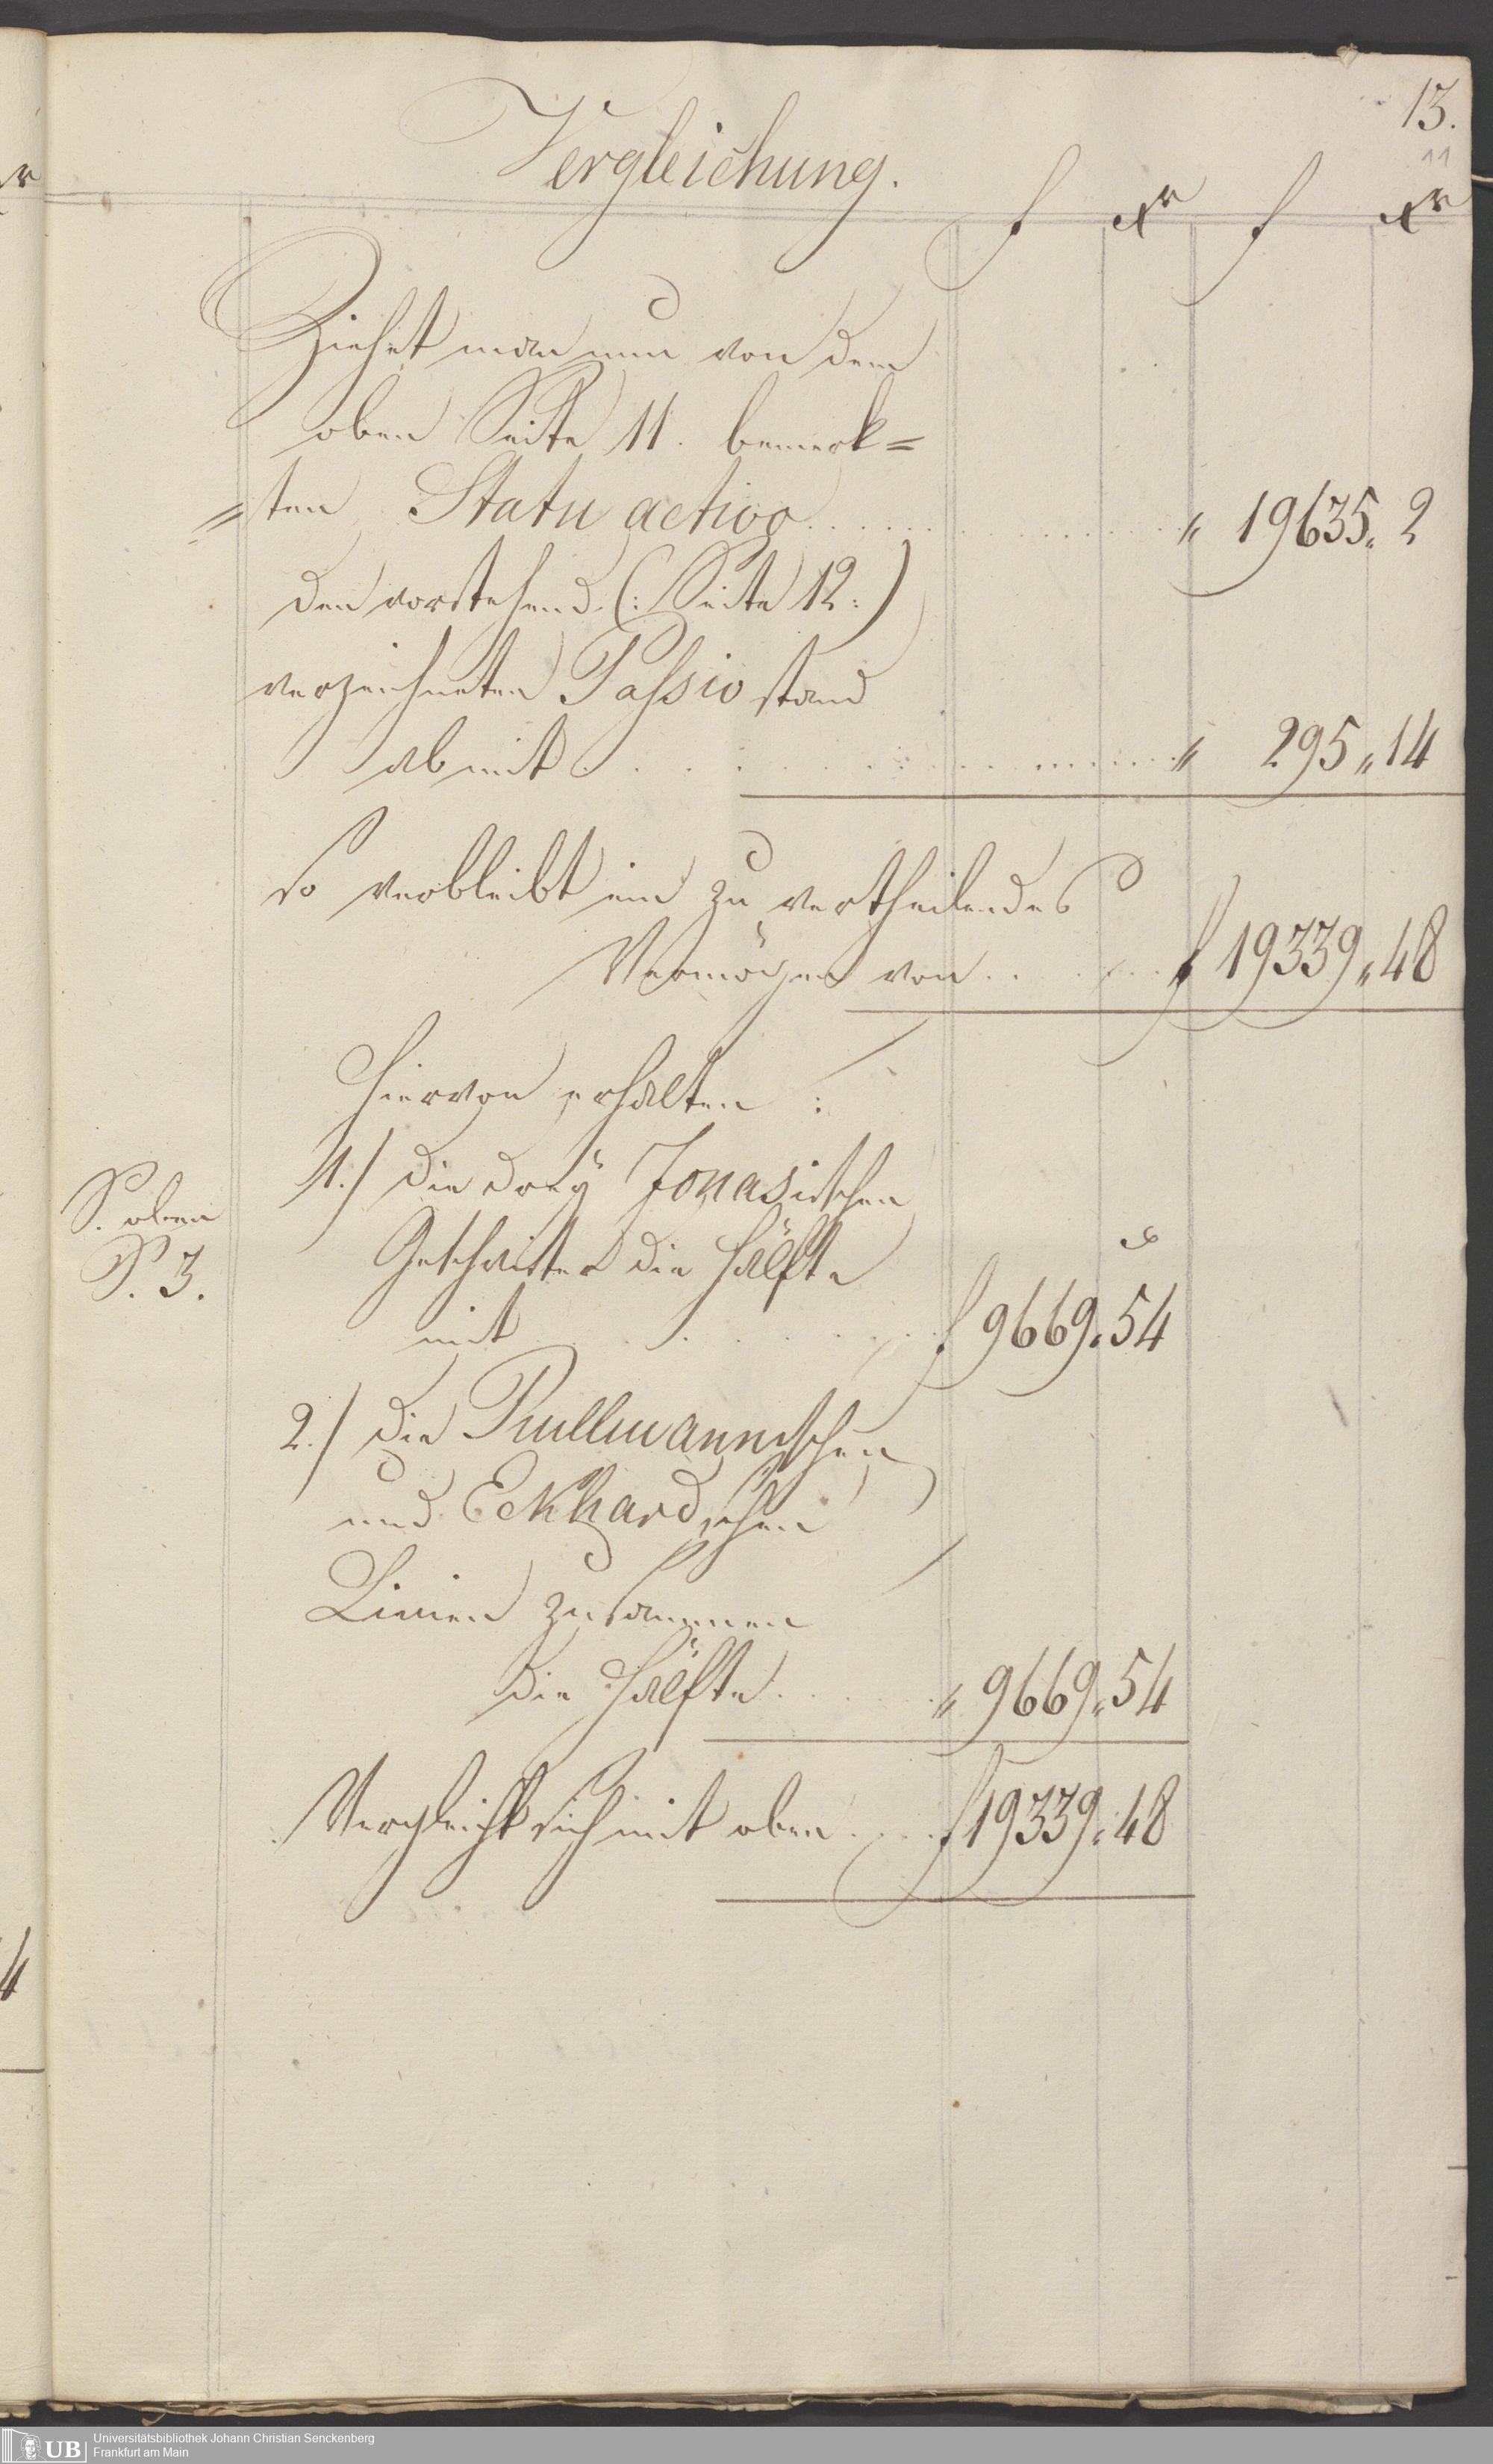 13.
11
Vergleichung.
f xr f xr
Ziehet man nun von dem
oben Seite 11. bemerk=
=ten Statu activo . . . . . . " 19635 " 2
den vorstehend (: Seite 12 :)
verzeichneten Passivstand
ab mit . . . . . . " 295 " 14
so verbleibt ein zu vertheilendes
Vermögen von . . . . f 19339 " 48
Hiervon erhalten :
1.) die drey Jonasischen
S. oben
S. 3.
Geschwister die Hälfte
mit . . . . . . f 9669 " 54
2.) die Prullmannischen
und Eckhardschen
Linien zusammen
die Hälfte . . . . . " 9669 " 54
Vergleicht sich mit oben . . . f 19339 " 48
4
UB
Universitätsbibliothek Johann Christian Senckenberg
Frankfurt am Main